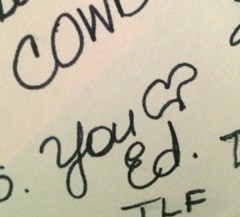 COWE
You ♡
Ed.
TLF